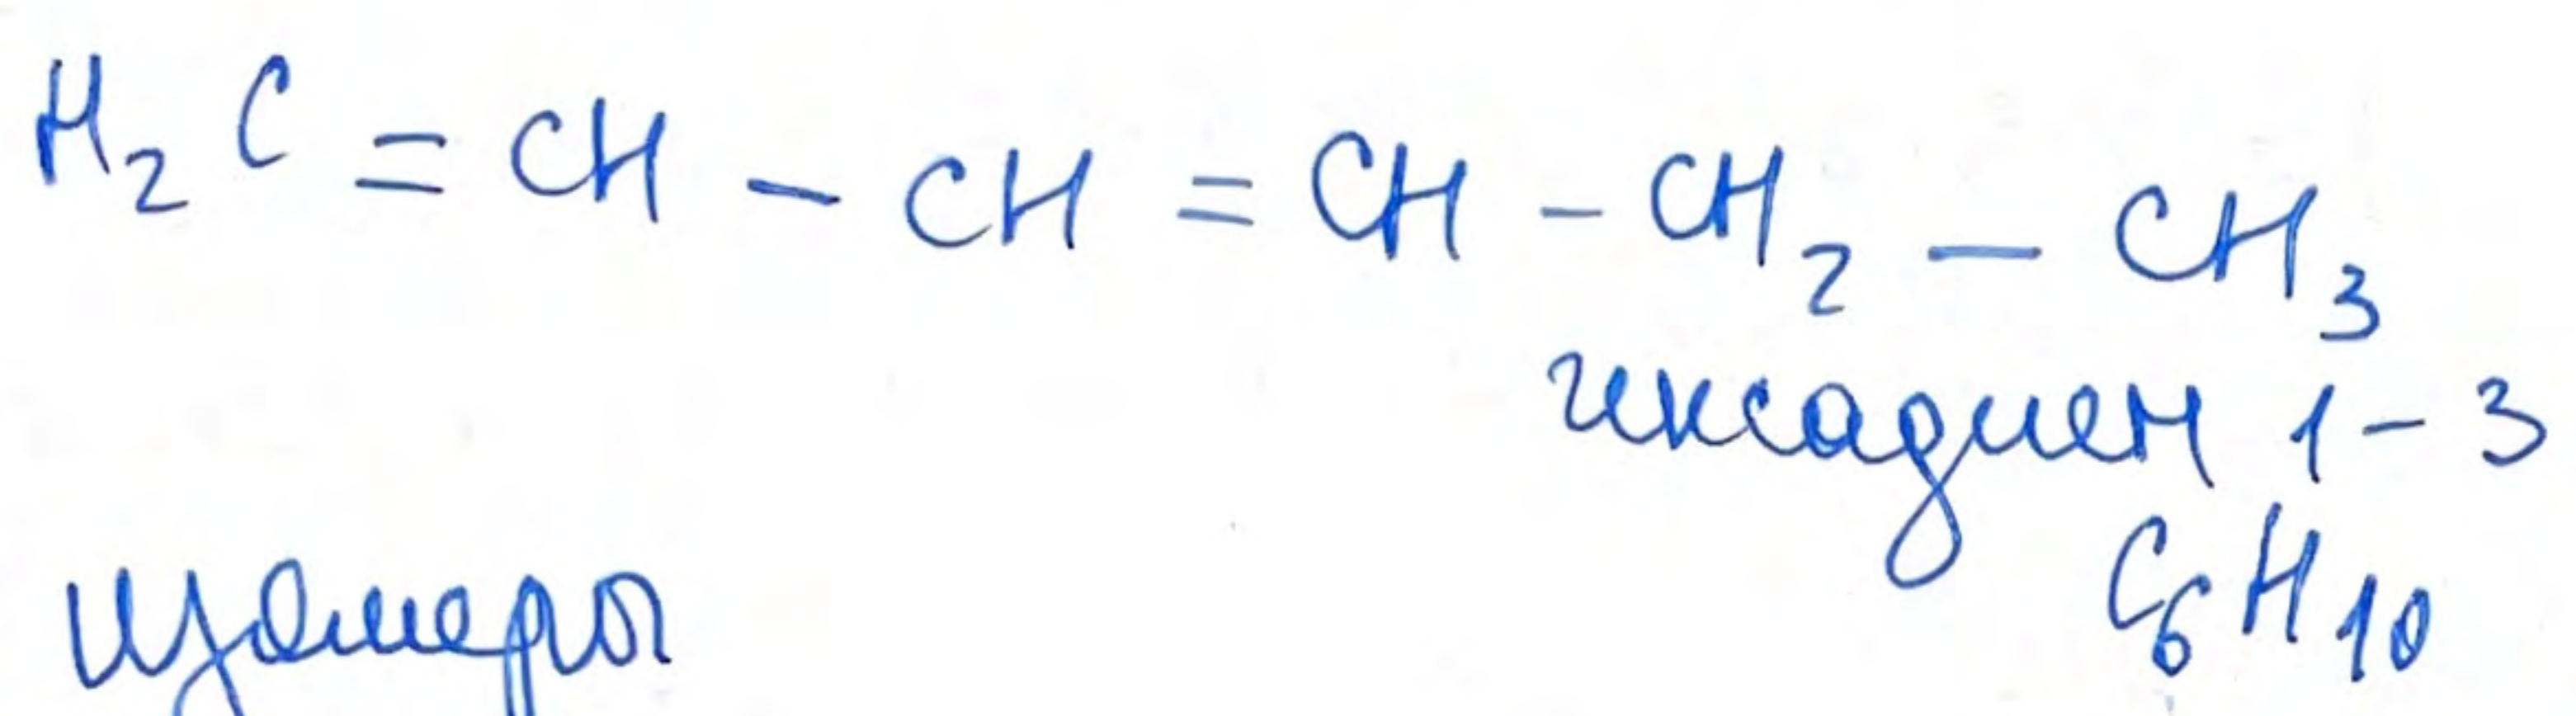 H₂C = CH - CH = CH - CH₂ - CH₃
гексадиен 1-3
C₆H₁₀
изомеры